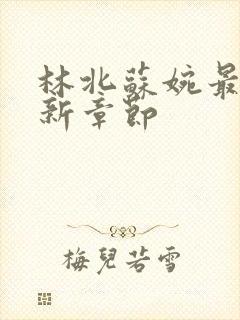 林北蘇婉最
新章節
梅兒若雪